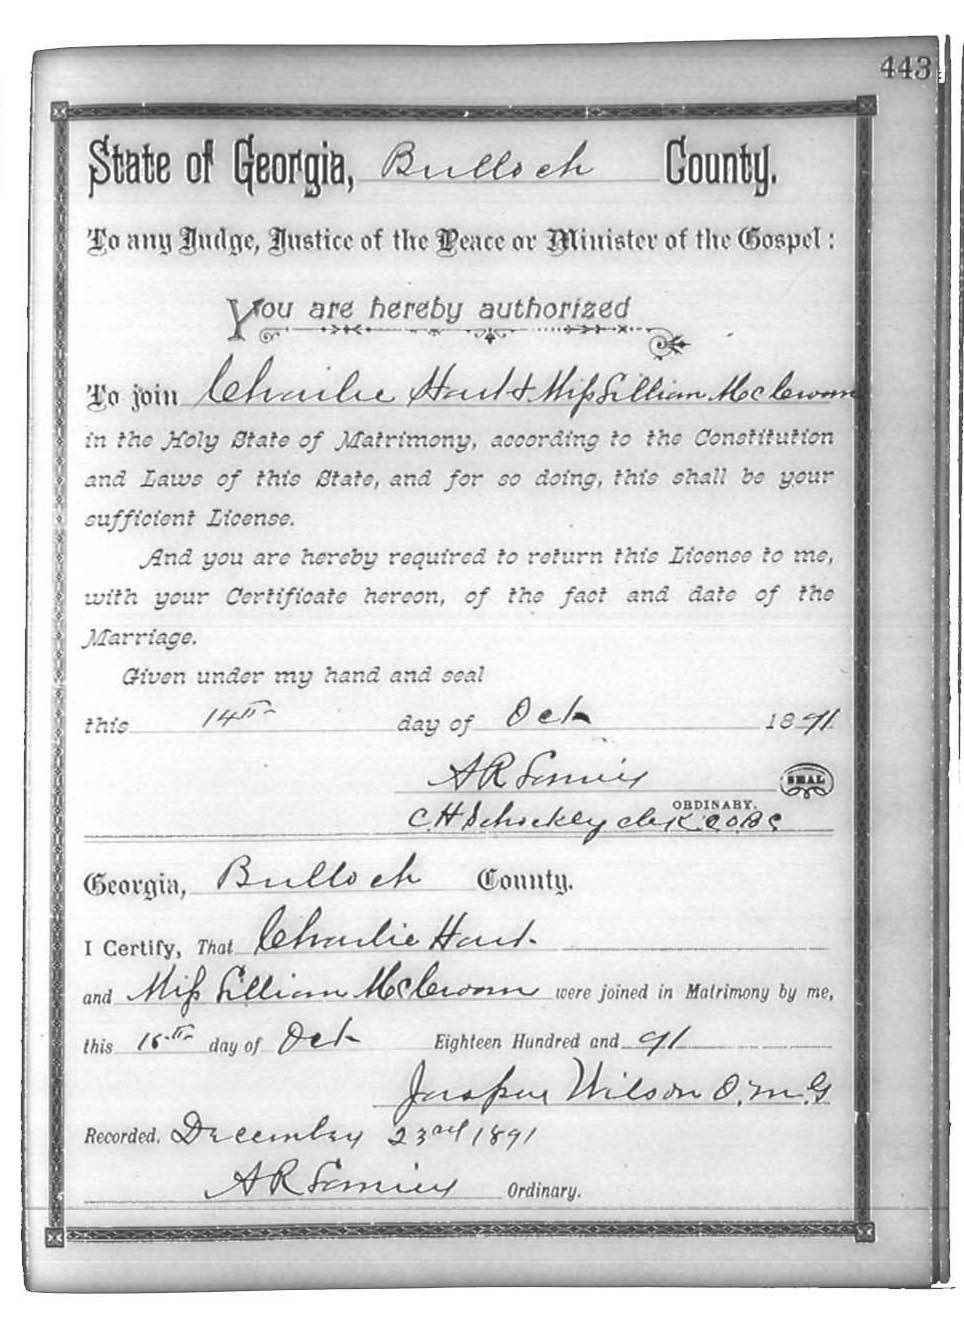 443
State of Georgia, Bulloch County.
To any Judge, Justice of the Peace or Minister of the Gospel:
You are hereby authorized
To join Charlie Hart & Miss Lillian McCroan
in the Holy State of Matrimony, according to the Constitution
and Laws of this State, and for so doing, this shall be your
sufficient License.
And you are hereby required to return this License to me,
with your Certificate hereon, of the fact and date of the
Marriage.
Given under my hand and seal
this 14th day of Oct 1891
A R Lanier SEAL
ORDINARY.
C H Schockley clerk
Georgia, Bulloch County.
I Certify, That Charlie Hart
and Miss Lillian McCroan were joined in Matrimony by me,
this 15th day of Oct Eighteen Hundred and 91
Jasper Wilson O.M.G
Recorded, December 23rd 1891
A R Lanier Ordinary.